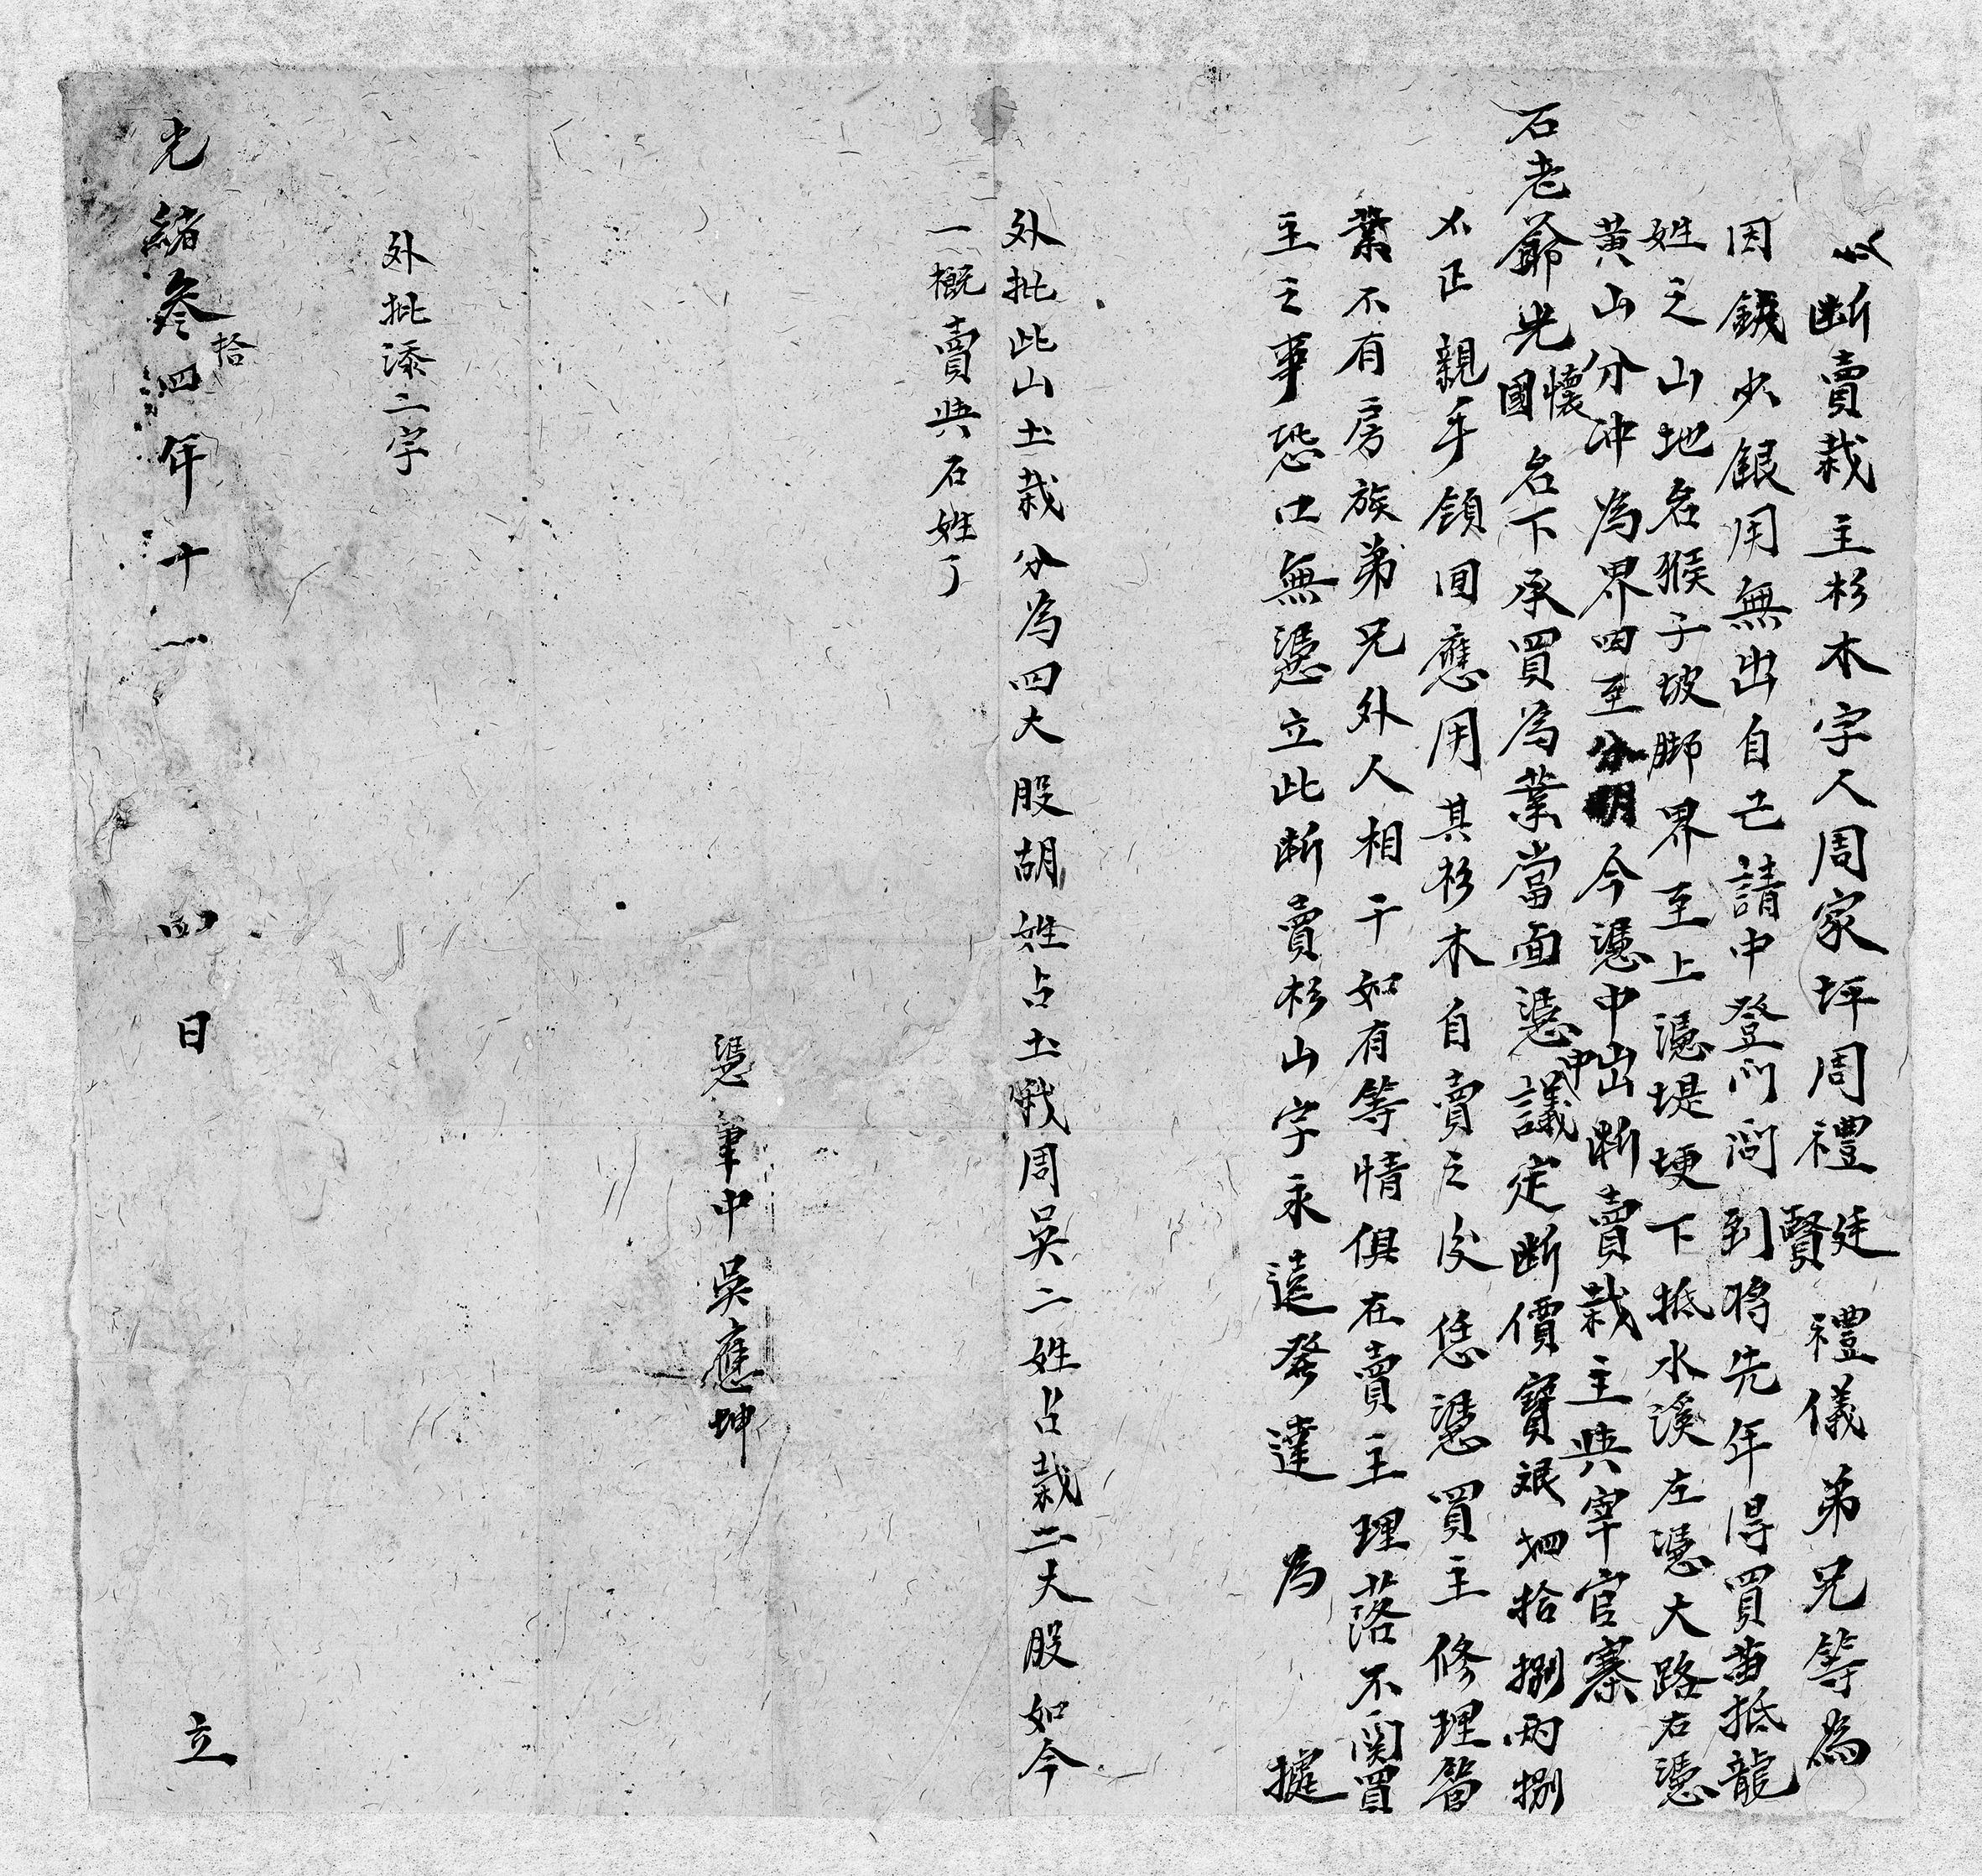 断賣栽主杉木字人周家坪周禮廷賢禮儀弟兄等為
因錢少銀用無出自己請中登門問到將先年得買苗抵龍
姓之山地名猴子坡脚界至上憑堤埂下抵水溪左憑大路右憑
黃山分冲為界四至分明今憑中出断賣栽主與宰官寨
石老爺光國懷名下承買為業當面憑中議定断價寶艮四拾捌両捌
不正親手領囬應用其杉木自賣之後恁憑買主修理畧
業不有房族弟兄外人相干如有等情俱在賣主理落不関買
主之事恐口無憑立此断賣杉山字永遠發達為據
外批此山土栽分為四大股胡姓占土戕周吳二姓占栽二大股如今
一概賣與石姓了
憑筆中吳應坤
外批添二字
光緒叄拾四年十一 四日 立